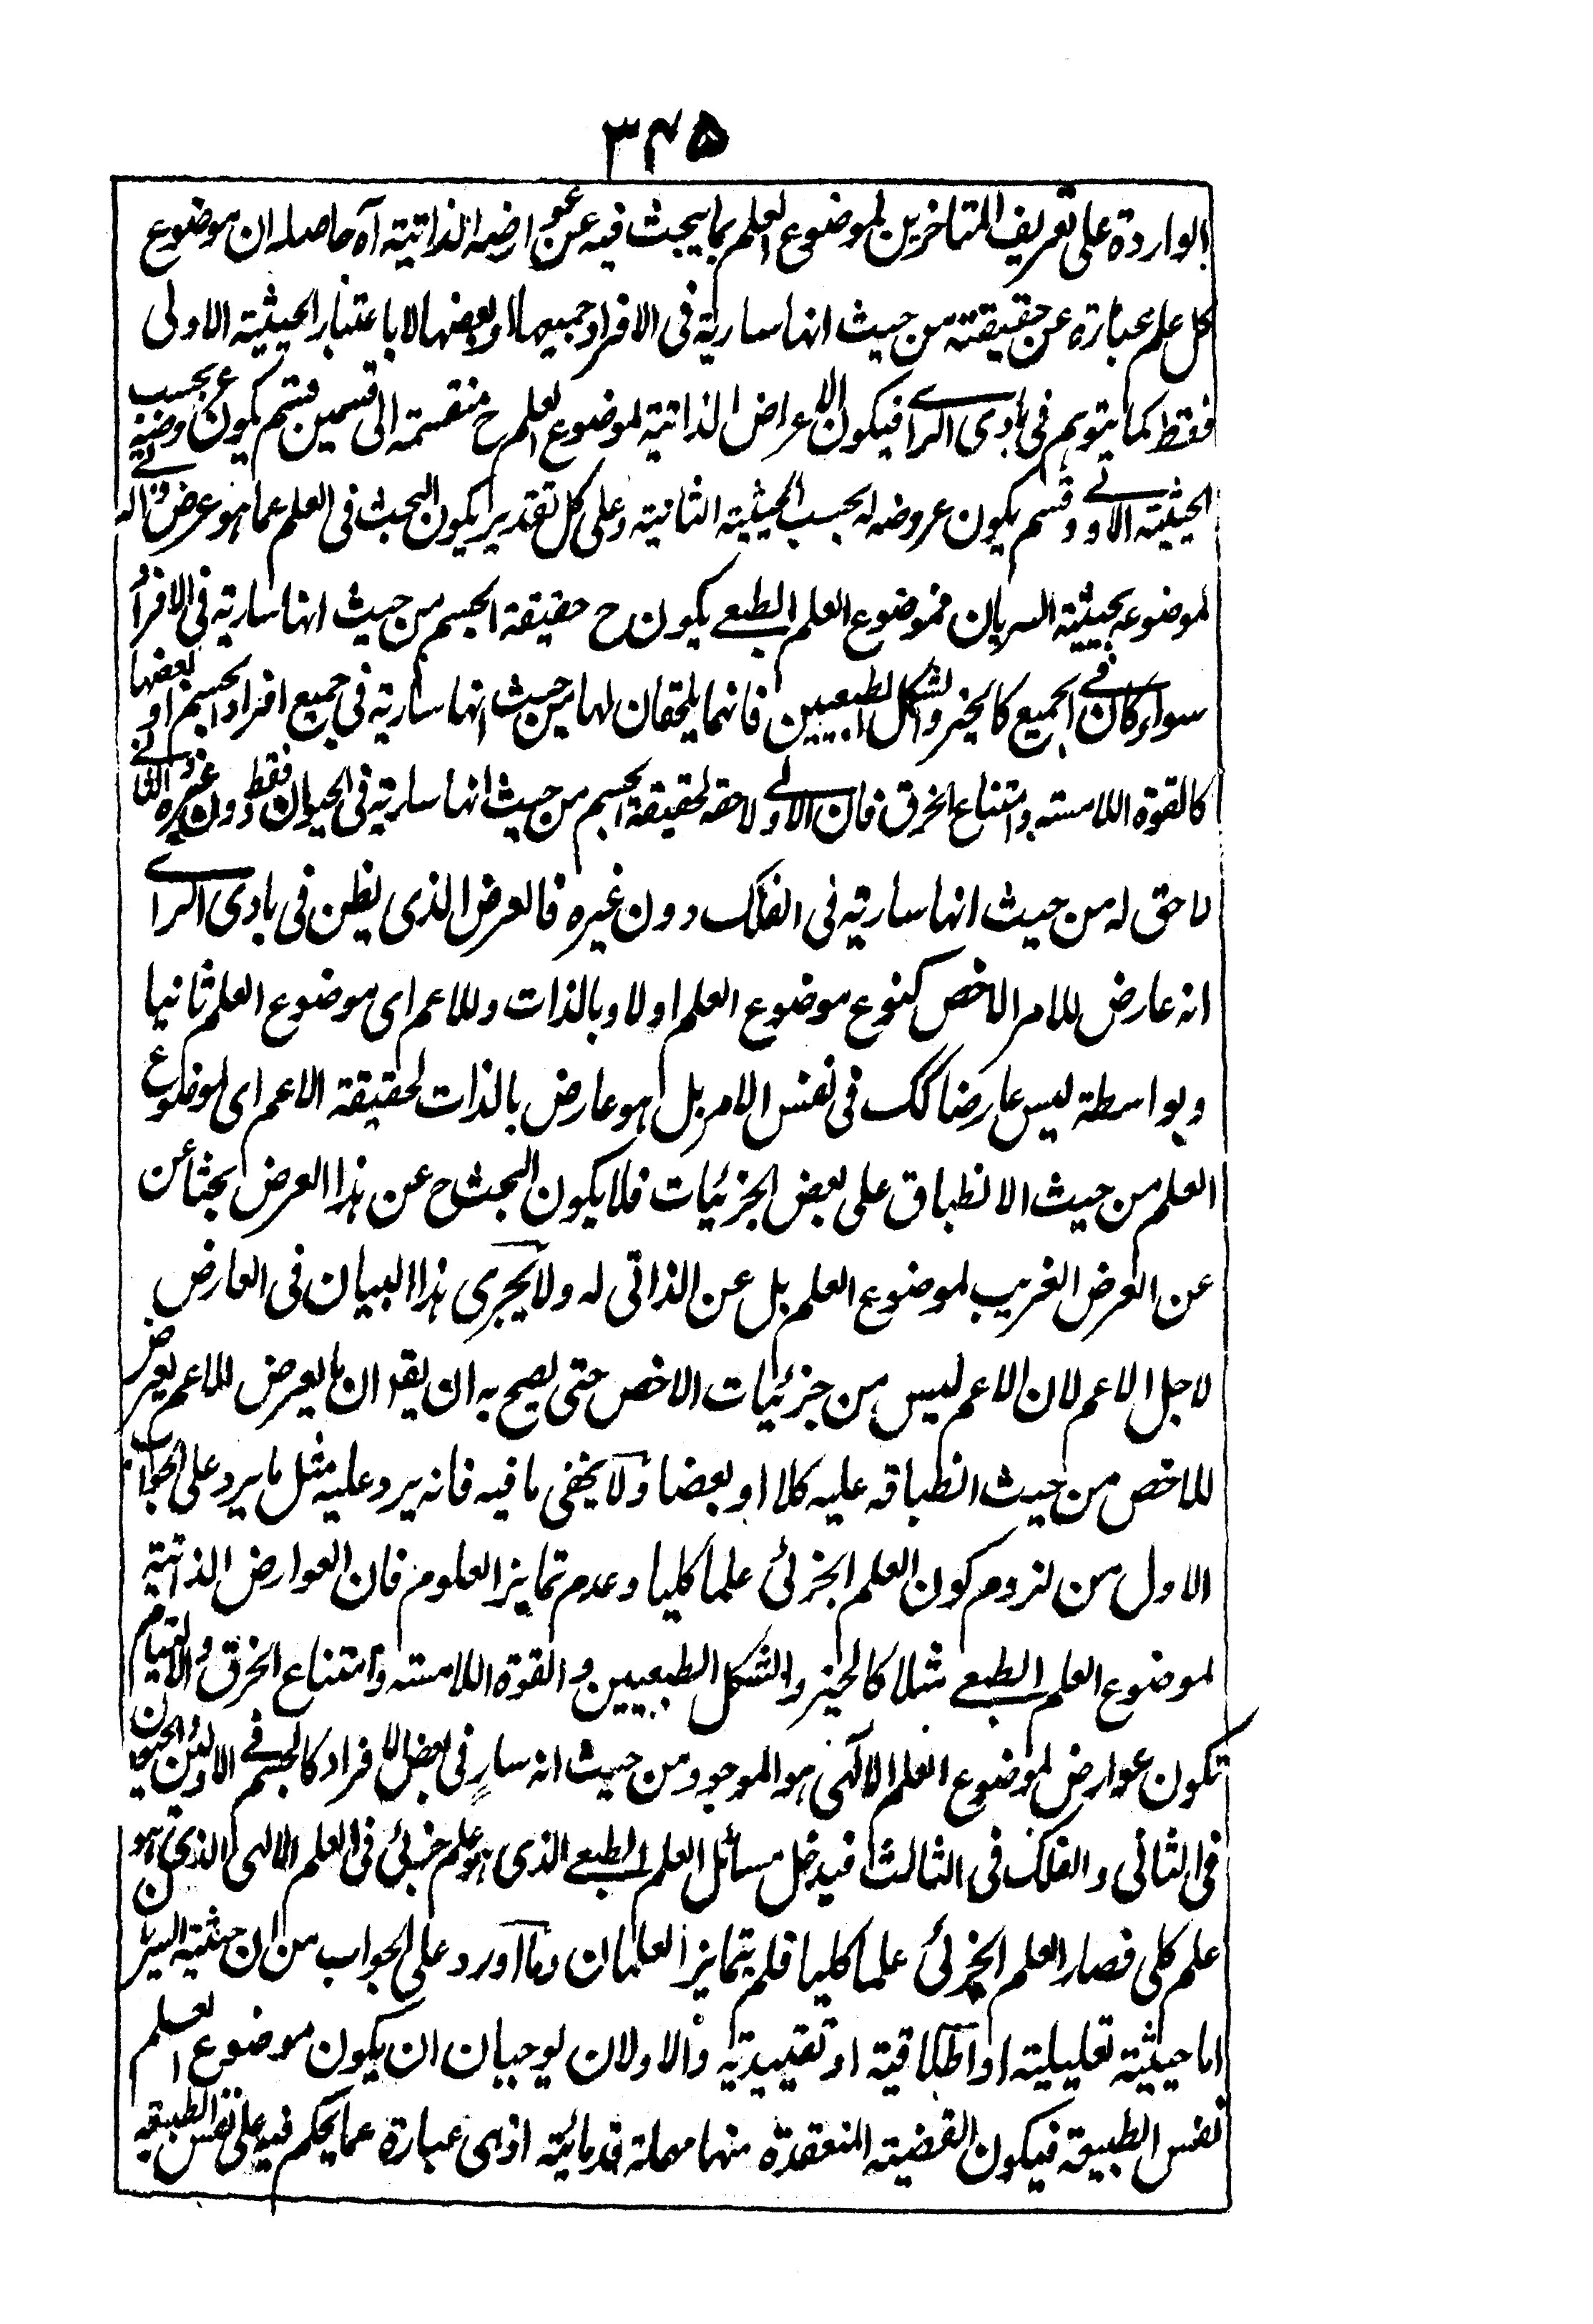 ٣٤٥
الواردة على تعريف المتاخرين لموضوع العلم بما يبحث فيه عن عوارضه الذاتية آه حاصله ان موضوع
كل علم عبارة عن حقيقته من حيث انها سارية فى الافراد جميعها او بعضها لا باعتبار الحيثية الاولى
فقط كما يتوهم فى بادى الراى فيكون الاعراض الذاتية لموضوع العلم ح منقسمة الى قسمين قسم يكون عروضه بحسب
الحيثية الاولى وقسم يكون عروضه له بحسب الحيثية الثانية وعلى كل تقدير يكون البحث فى العلم عما هو عرض ذاتى
لموضوعه بحيثية السريان فموضوع العلم الطبعى يكون ح حقيقة الجسم من حيث انها سارية فى الافراد
سواء كان فى الجميع كالحيز والشكل الطبعيين فانهما يلحقان لها من حيث انها سارية فى جميع افراد الجسم او بعضها
كالقوة اللامسة وامتناع الخرق فان الاولى لاحقة لحقيقة الجسم من حيث انها سارية فى الحيوان فقط دون غيره والثانى
لاحق له من حيث انها سارية فى الفلك دون غيره فالعرض الذى يظن فى بادى الراى
انه عارض للامر الاخص كنوع موضوع العلم اولا وبالذات وللاعم اى موضوع العلم ثانيا
وبواسطة ليس عارضا كك فى نفس الامر بل هو عارض بالذات لحقيقة الاعم اى لموضوع
العلم من حيث الانطباق على بعض الجزئيات فلا يكون البحث ح عن هذا العرض بحثا عن
عن العرض الغريب لموضوع العلم بل عن الذاتى له ولا يجرى هذا البيان فى العارض
لاجل الاعم لان الاعم ليس من جزئيات الاخص حتى يصح به ان يقد ان ما يعرض للاعم يعرض
للاخص من حيث انطباقه عليه كلا او بعضا ولا يخفى ما فيه فانه يرد عليه مثل ما يرد على الجواب
الاول من لزوم كون العلم الجزئى علما كليا وعدم تمايز العلوم فان العوارض الذاتية
لموضوع العلم الطبعى مثلا كالحيز والشكل الطبعيين والقوة اللامسة وامتناع الخرق والالتيام
تكون عوارض لموضوع العلم الالهى هو الموجود من حيث انه سارٍ فى بعض الافراد كالجسم فى الاولين والحيوان
فى الثانى والفلك فى الثالث فيدخل مسائل العلم الطبعى الذى هو علم جزئى فى العلم الالهى الذى هو
علم كلى فصار العلم الجزئى علما كليا فلم يتمايز العلمان وما اورد على الجواب من ان حيثية السريان
اما حيثية تعليلية او اطلاقية او تقييدية والاولان يوجبان ان يكون موضوع العلم
نفس الطبيعة فيكون القضية المنعقدة منها مهملة قدمائية اذ هى عبارة عما يحكم فيه على نفس الطبيعة